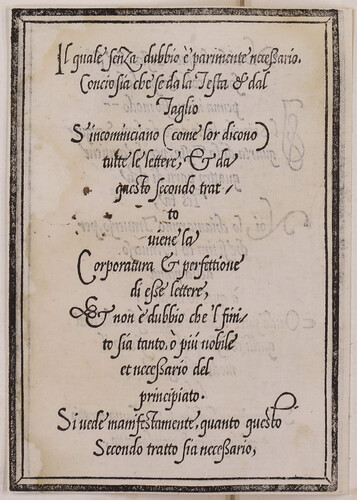 Il quale senza dubbio è parimente necessario.
Conciosia che se da la Testa & dal
Taglio
S'incominciano (come lor dicono)
tutte le lettere, & da
questo secondo trat-
to
viene la
Corporatura & perfettione
di esse lettere,
& non è dubbio che 'l fini-
to sia tanto, ò più nobile
et necessario del
principiato.
Si vede manifestamente, quanto questo
Secondo tratto sia necessario,